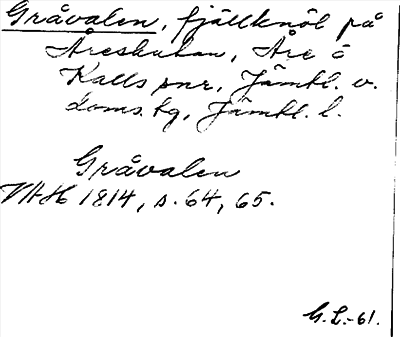 Gråvalen, fjällknöl på
Åreskutan, Åre o
Kalls snr, Jämtl. v.
doms.tg, Jämtl. l.
Gråvalen
VAH 1814, s. 64, 65.
G. L.-61.